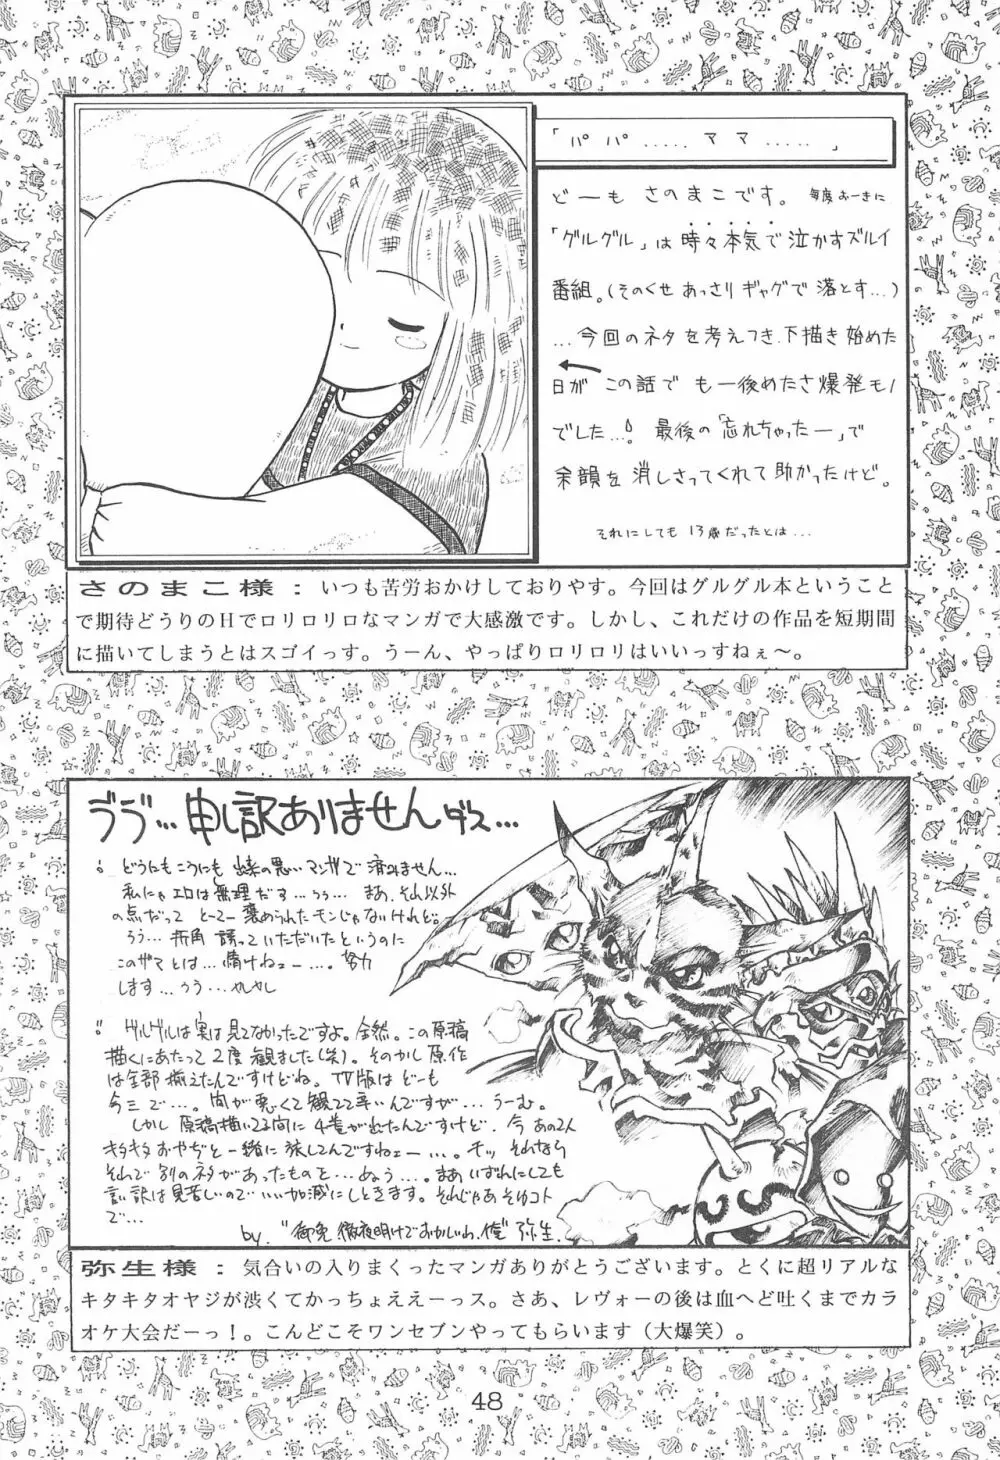 「パパ..... ママ.....」
どーも さのまこです。 毎度おーきに
「グルグル」は時々本気で泣かすズルイ
番組。(そのくせあっさりギャグで落とす...)
...今回のネタを考えつき、下描き始めた
日が この話で も一後めたさ爆発モノ
でした...。 最後の「忘れちゃったー」で
余韻を消しさってくれて助かったけど。
それにしても 13歳だったとは...
さのまこ様：いつも苦労おかけしておりやす。今回はグルグル本ということ
で期待どうりのＨでロリロリロなマンガで大感激です。しかし、これだけの作品を短期間
に描いてしまうとはスゴイっす。うーん、やっぱりロリロリはいいっすねぇ～。
ゔゔ...申し訳ありませんダス...
どうにもこうにも出来の悪いマンガで済みません...
私にゃエロは無理だす...うぅ... まあ、それ以外
の点だって とてー褒められたモンじゃないけれど。
うう... 折角 誘っていただいたというのに
このザマとは... 情けねェー...。努力
します...うう...
グルグルは実は見てなかったですよ。全然。この原稿
描くにあたって2度観ました(笑)。そのかし原作
は全部揃えたんですけどね。TV版はどーも
今三で...。間が悪くて観てて辛いんですが... うーむ。
しかし 原稿描いてる間に 4巻がでたんですけど、今あの2人
キタキタおやぢと一緒に旅してんですねェー...。 それなら
それで別のネタがあったものを...ぬぅ...。まあいずれにしても
言い訳は見苦しいのでいい加減にしときます。そんじゃあそゆコト
で...
by. "御免 徹夜明けでおかしいわ、俺" 弥生.
弥生様：気合いの入りまくったマンガありがとうございます。とくに超リアルな
キタキタオヤジが渋くてかっちょええーっス。さあ、レヴォーの後は血へど吐くまでカラ
オケ大会だーっ！。こんどこそワンセブンやってもらいます（大爆笑）。
48